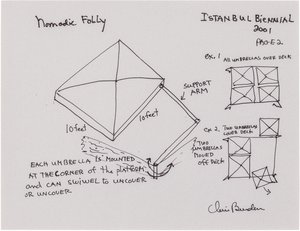 Nomadic Folly
ISTANBUL BIENNIAL
2001
PAGE 2
ex. 1 All umbrellas over deck
SUPPORT
ARM
10 feet
10 feet
ex. 2, Two umbrellas
cover
deck
Two
umbrellas
moved
off deck
EACH UMBRELLA IS MOUNTED
AT THE CORNER of the platform
and can swivel to uncover
or uncover
Chris Burden